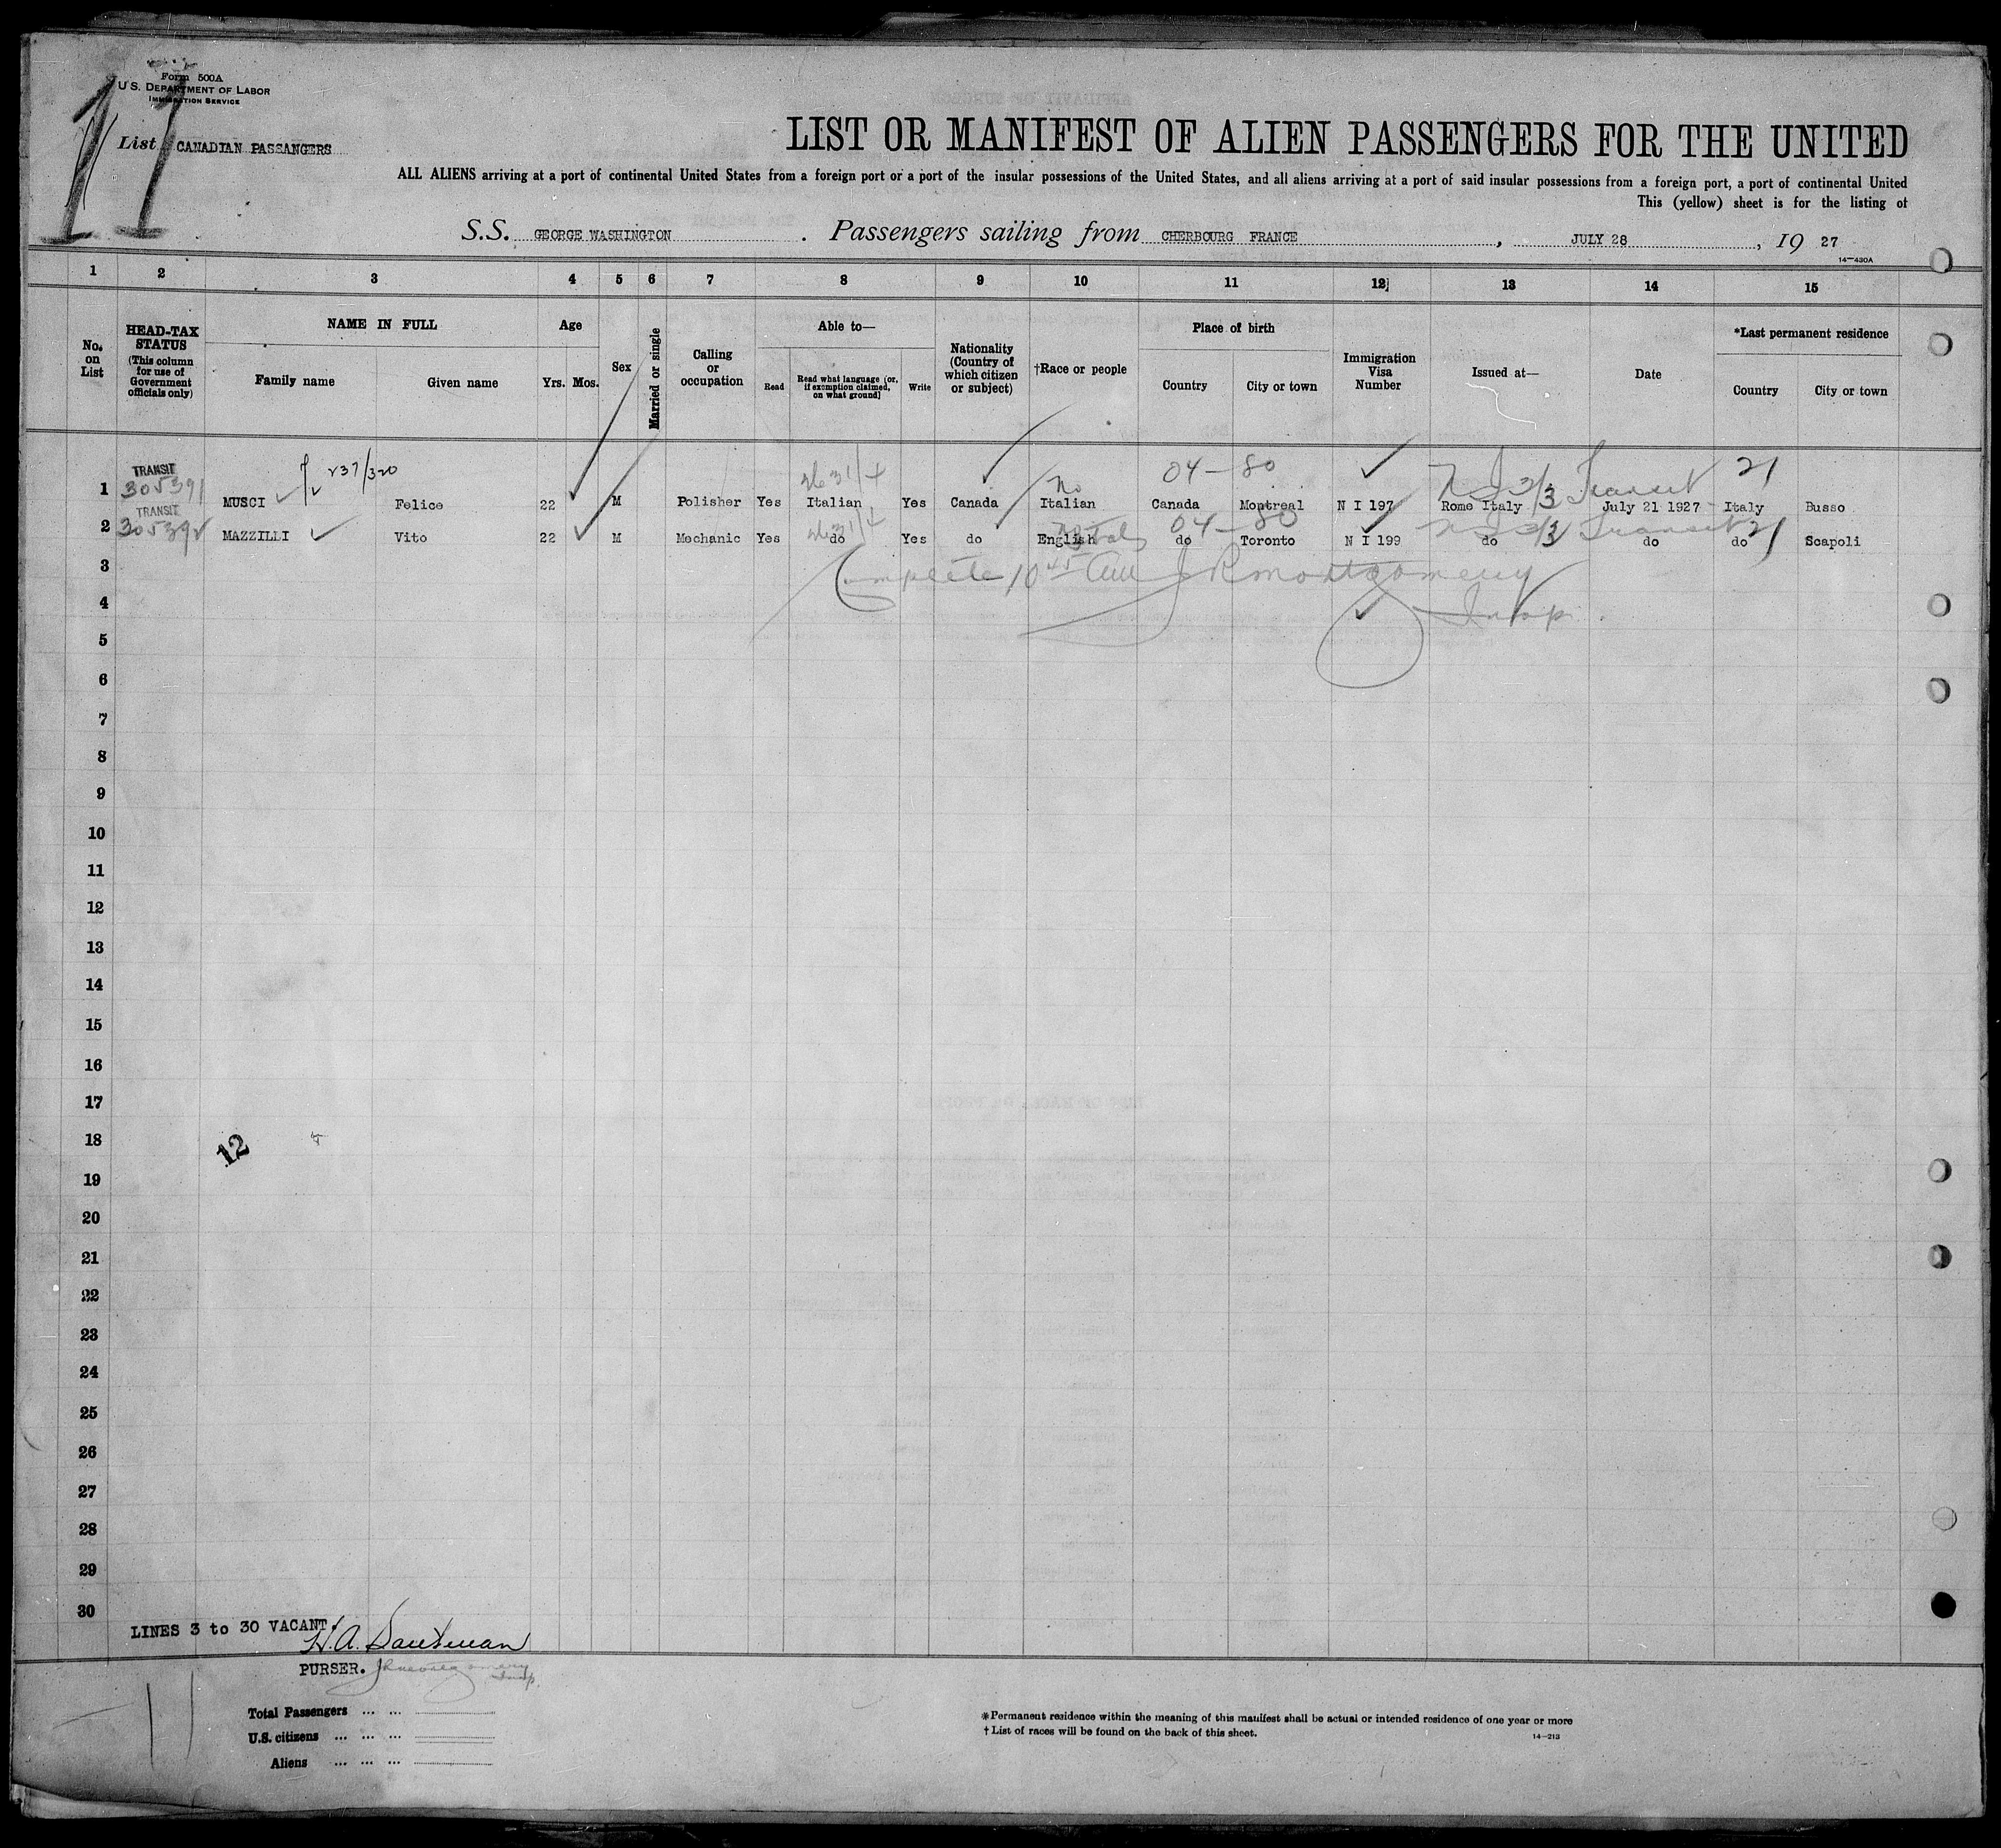 Form 500A
U.S. DEPARTMENT OF LABOR
IMMIGRATION SERVICE
11
List CANADIAN PASSANGERS
LIST OR MANIFEST OF ALIEN PASSENGERS FOR THE UNITED
ALL ALIENS arriving at a port of continental United States from a foreign port or a port of the insular possessions of the United States, and all aliens arriving at a port of said insular possessions from a foreign port, a port of continental United
This (yellow) sheet is for the listing of
S.S. GEORGE WASHINGTON. Passengers sailing from CHERBOURG FRANCE, JULY 28, 19 27
14—430A
1 2 3 4 5 6 7 8 9 10 11 12 13 14 15
No. on List
HEAD-TAX STATUS
(This column for use of Government officials only)
NAME IN FULL
Family name Given name
Age
Yrs. Mos.
Sex
Married or single
Calling or occupation
Able to—
Read
Read what language [or, if exemption claimed, on what ground]
Write
Nationality (Country of which citizen or subject)
†Race or people
Place of birth
Country City or town
Immigration Visa Number
Issued at—
Date
*Last permanent residence
Country City or town
TRANSIT 237/320 04-80 21
1 305391 MUSCI Felice 22 M Polisher Yes Italian Yes Canada No Italian Canada Montreal N I 197 Rome Italy 3/3 Transit July 21 1927 Italy Busso
TRANSIT 04-80 21
2 305392 MAZZILLI Vito 22 M Mechanic Yes do Yes do English do Toronto N I 199 do Transit do do Scapoli
3 Complete 10 45 AM J R Montgomery
4 Insp.
5
6
7
8
9
10
11
12
13
14
15
16
17
18
12
19
20
21
22
23
24
25
26
27
28
29
30
LINES 3 to 30 VACANT.
PURSER. J R Montgomery Insp.
11
Total Passengers ... ...
U.S. citizens ... ... ...
Aliens ... ... ...
*Permanent residence within the meaning of this manifest shall be actual or intended residence of one year or more
†List of races will be found on the back of this sheet.
14—213